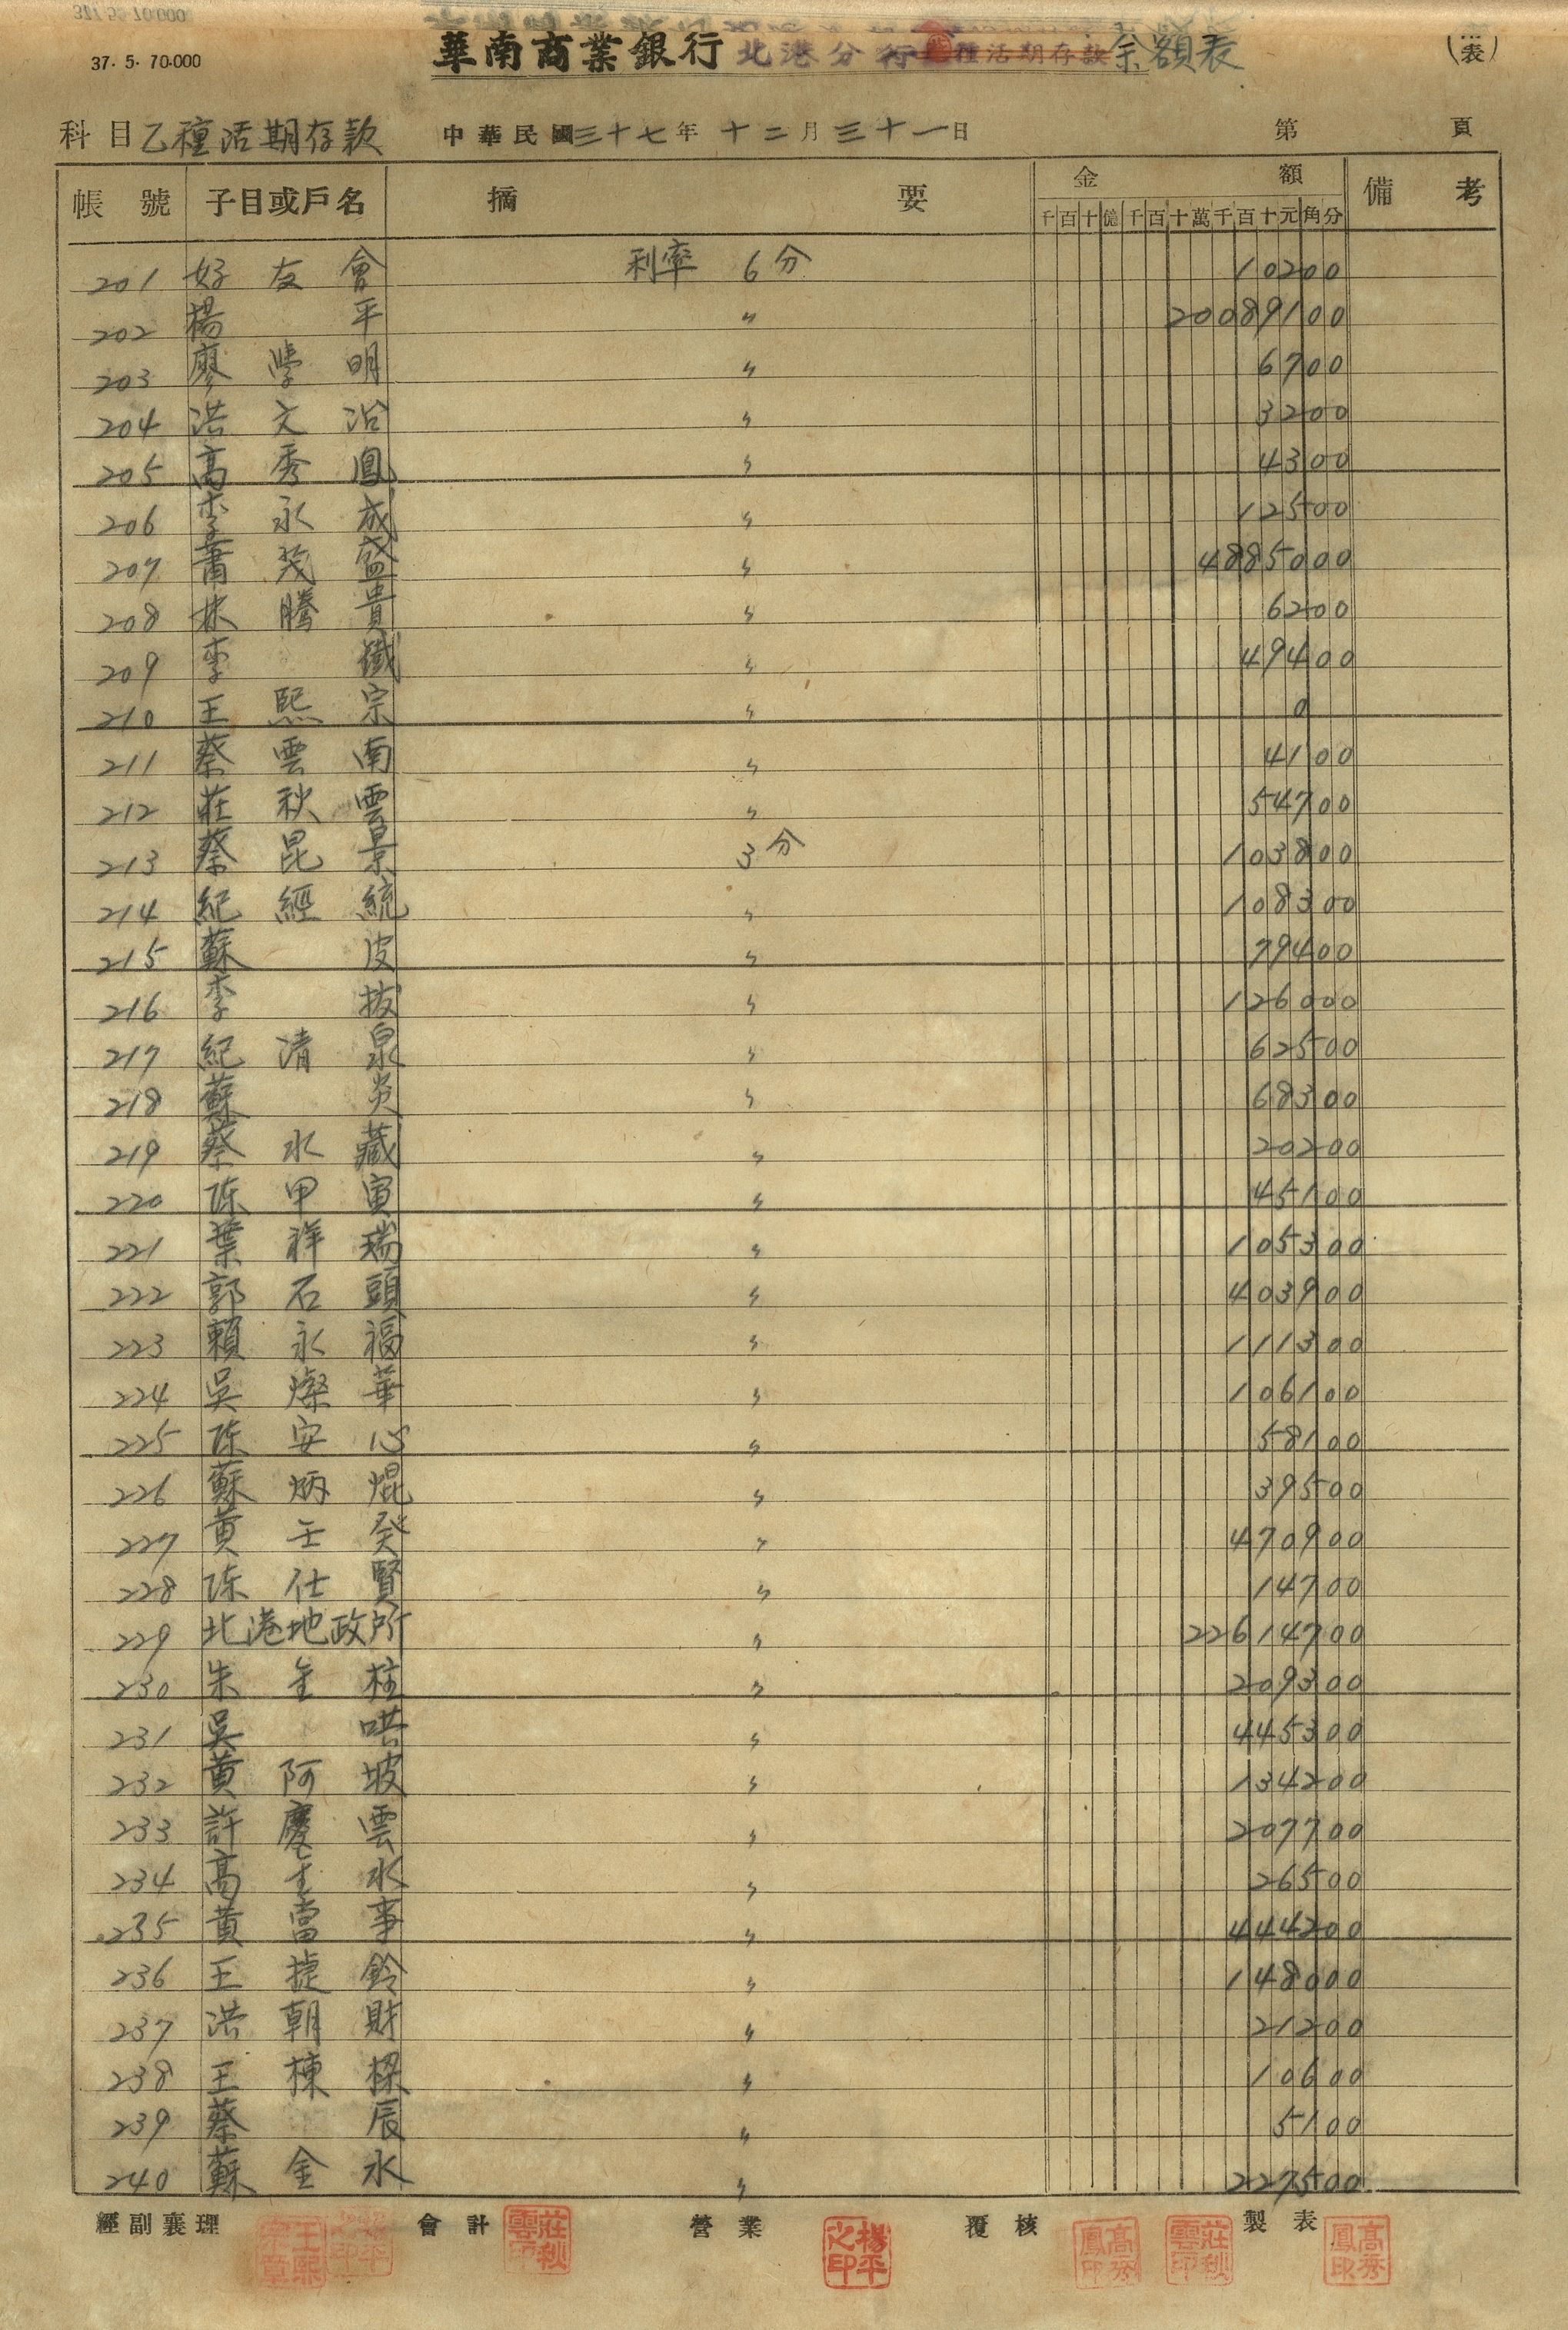 37. 5. 70.000
華南商業銀行北港分行乙種活期存款余額表
(表)
科目乙種活期存款 中華民國三十七年十二月三十一日 第 頁
帳號 子目或戶名 摘要 金額 備考
千百十億千百十萬千百十元角分
201 好友會 利率 6分 10200
202 楊平 〃 20089100
203 廖學明 〃 6700
204 洪文治 〃 3200
205 高秀鳳 〃 4300
206 李永成 〃 12500
207 蕭茂盛 〃 4885000
208 林騰貴 〃 6200
209 李鐵 〃 49400
210 王熙宗 〃 0
211 蔡雲南 〃 4100
212 莊秋雲 〃 54700
213 蔡昆景 3分 103800
214 紀經統 〃 108300
215 蘇皮 〃 79400
216 李拔 〃 126000
217 紀清泉 〃 62500
218 蘇炎 〃 68300
219 蔡水藏 〃 20200
220 陈甲寅 〃 45100
221 葉祥瑞 〃 105300
222 郭石頭 〃 403900
223 賴永福 〃 111300
224 吳燦華 〃 106100
225 陈安心 〃 58100
226 蘇炳焜 〃 39500
227 黄壬癸 〃 470900
228 陈仕賢 〃 14700
229 北港地政所 〃 22614700
230 朱金柱 〃 209300
231 吳哄 〃 445300
232 黄阿坡 〃 134200
233 許慶雲 〃 207700
234 高金水 〃 26500
235 黄當事 〃 444200
236 王捷鈴 〃 148000
237 洪朝財 〃 21200
238 王棟樑 〃 10600
239 蔡辰 〃 5100
240 蘇金水 〃 227500
經副襄理 會計 營業 覆核 製表
王熙宗章 楊平之印 莊秋雲印 楊平之印 高秀鳳印 莊秋雲印 高秀鳳印